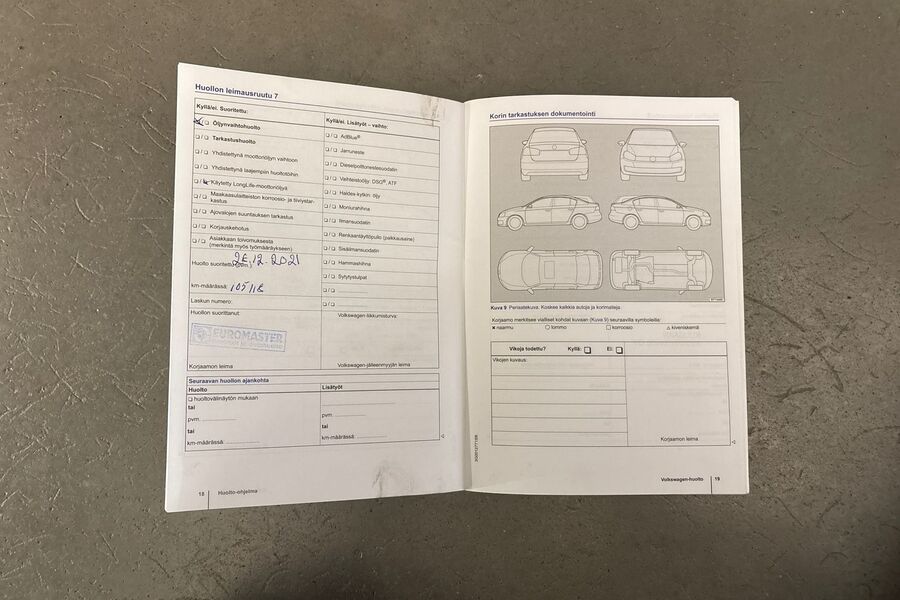 Huollon leimausruutu 7
Kyllä/ei. Suoritettu:
Öljynvaihtohuolto
Tarkastushuolto
Yhdistettynä moottoriöljyn vaihtoon
Yhdistettynä laajempiin huoltotöihin
Käytetty LongLife-moottoriöljyä
Maakaasulaitteiston korroosio- ja tiiviystar-
kastus
Ajovalojen suuntauksen tarkastus
Korjauskehotus
Asiakkaan toivomuksesta
(merkintä myös työmääräykseen)
Huolto suoritettu (pvm.)
.12.2021
km-määrässä: 105118
Laskun numero:
Huollon suorittanut:
EUROMASTER
Korjaamon leima
Kyllä/ei. Lisätyöt – vaihto:
AdBlue®
Jarruneste
Dieselpolttonestesuodatin
Vaihteistoöljy: DSG®, ATF
Haldex-kytkin: öljy
Moniurahihna
Ilmansuodatin
Renkaantäyttöpullo (paikkausaine)
Sisäilmansuodatin
Hammashihna
Sytytystulpat
Volkswagen-liikkumisturva:
Volkswagen-jälleenmyyjän leima
Seuraavan huollon ajankohta
Huolto
huoltovälinäytön mukaan
tai
pvm.
tai
km-määrässä:
Lisätyöt
pvm.
tai
km-määrässä:
18 Huolto-ohjelma
Korin tarkastuksen dokumentointi
Kuva 9 Periaatekuva: Koskee kaikkia autoja ja korimalleja.
Korjaamo merkitsee vialliset kohdat kuvaan (Kuva 9) seuraavilla symboleilla:
naarmu lommo korroosio kiveniskemä
Vikoja todettu? Kyllä: Ei:
Vikojen kuvaus:
Korjaamon leima
Volkswagen-huolto 19